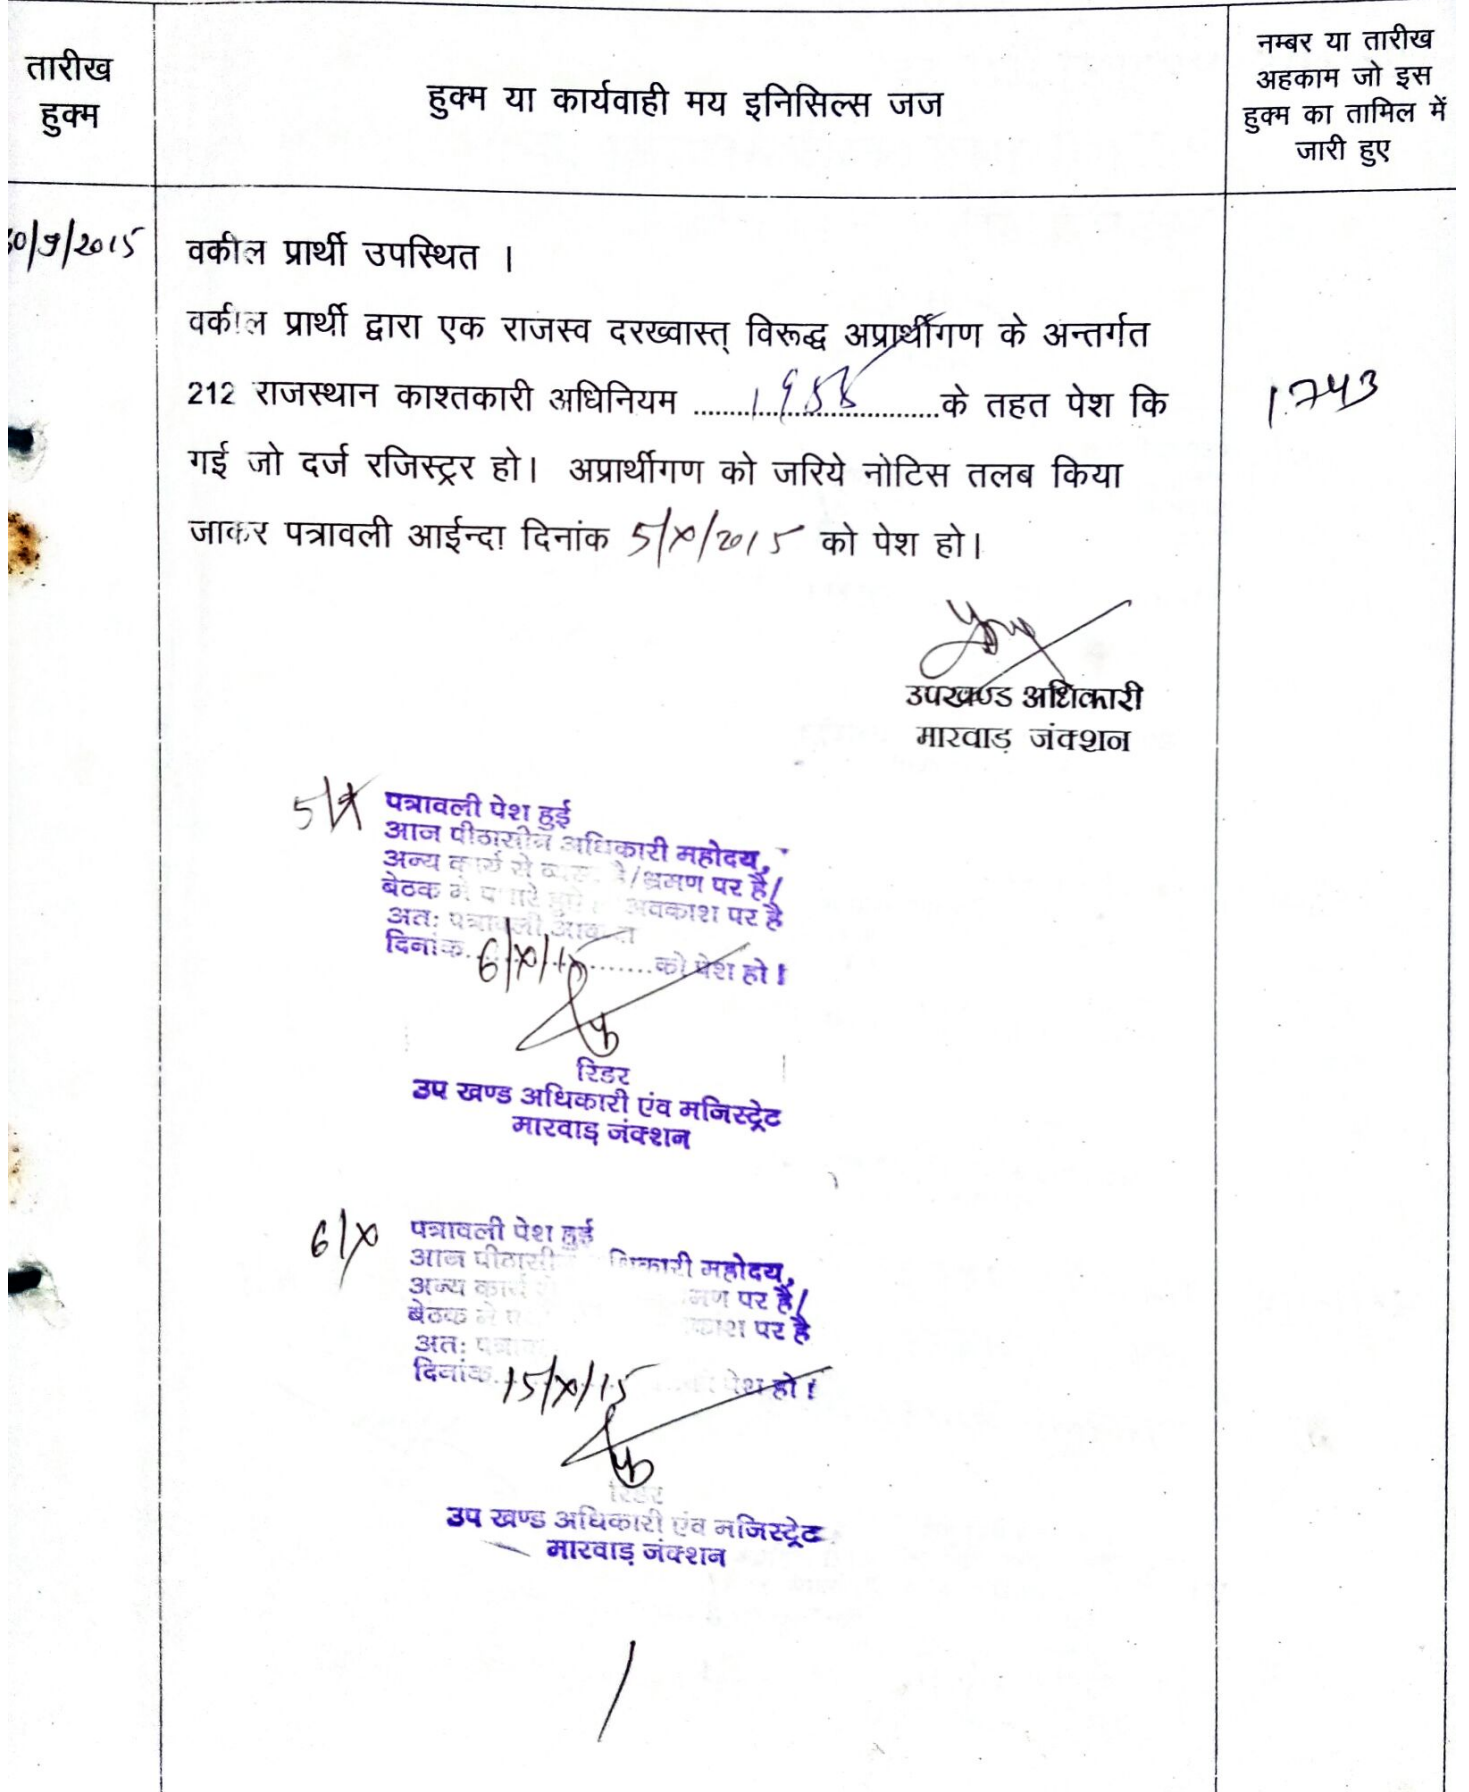 तारीख
हुक्म
हुक्म या कार्यवाही मय इनिसिल्स जज
नम्बर या तारीख
अहकाम जो इस
हुक्म का तामिल में
जारी हुए
30/9/2015
वकील प्रार्थी उपस्थित ।
वकील प्रार्थी द्वारा एक राजस्व दरख्वास्त् विरूद्ध अप्रार्थीगण के अन्तर्गत
212 राजस्थान काश्तकारी अधिनियम ......1955......के तहत पेश कि
1743
गई जो दर्ज रजिस्ट्रर हो। अप्रार्थीगण को जरिये नोटिस तलब किया
जाकर पत्रावली आईन्दा दिनांक 5/X/2015 को पेश हो।
उपखण्ड अधिकारी
मारवाड़ जंक्शन
5/X पत्रावली पेश हुई
आज पीठासीन अधिकारी महोदय,
अन्य कार्य से व्यस्त है/भ्रमण पर है/
बेठक में पधारे हुए है अवकाश पर है
अतः पत्रावली
दिनांक 6/X/15 को पेश हो।
रिडर
उप खण्ड अधिकारी एंव मजिस्ट्रेट
मारवाड़ जंक्शन
6/X पत्रावली पेश हुई
आज पीठासीन अधिकारी महोदय,
अन्य कार्य भ्रमण पर है/
बेठक में अवकाश पर है
अतः
दिनांक 15/X/15 पेश हो।
रिडर
उप खण्ड अधिकारी एंव मजिस्ट्रेट
मारवाड़ जंक्शन